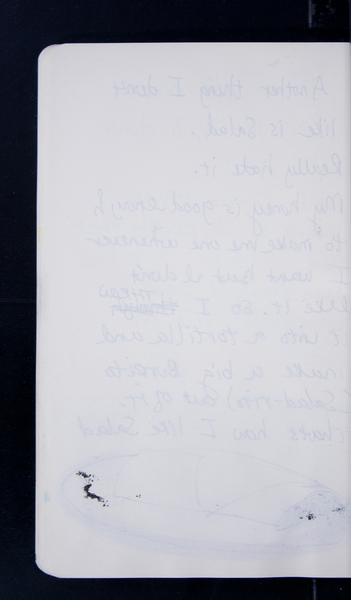 Another thing I don't
like is Salad.
Really hate it.
My honey is good enough
to make me one whenever
I want but I don't
like it. So I throw
it into a tortilla and
make a big Burrito
(Salad-rito) out of it.
thats how I like Salad